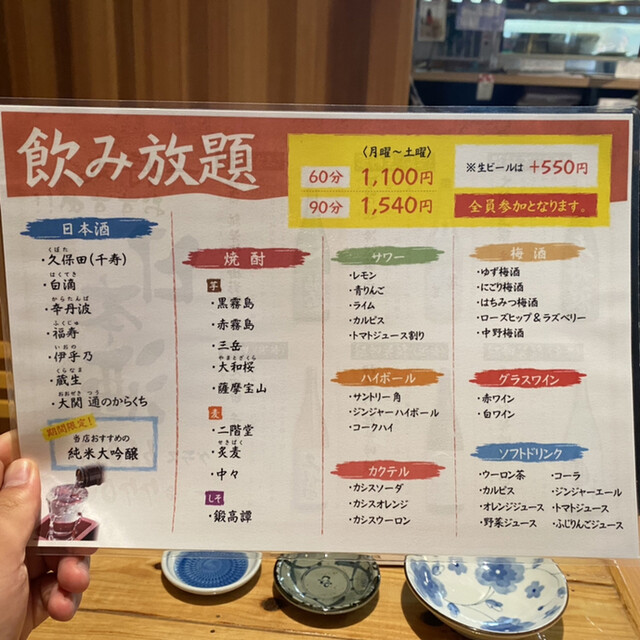 飲み放題
〈月曜〜土曜〉
60分 1,100円
90分 1,540円
※生ビールは +550円
全員参加となります。
日本酒
くぼた
・久保田(千寿)
はくてき
・白滴
からたんば
・辛丹波
ふくじゅ
・福寿
いおの
・伊乎乃
くらなま
・蔵生
おおぜき つう
・大関 通のからくち
期間限定!
当店おすすめの
純米大吟醸
焼酎
芋
・黒霧島
・赤霧島
・三岳
やまとざくら
・大和桜
・薩摩宝山
麦
・二階堂
せきばく
・炙麦
・中々
しそ
・鍛高譚
サワー
・レモン
・青りんご
・ライム
・カルピス
・トマトジュース割り
ハイボール
・サントリー角
・ジンジャーハイボール
・コークハイ
カクテル
・カシスソーダ
・カシスオレンジ
・カシスウーロン
梅酒
・ゆず梅酒
・にごり梅酒
・はちみつ梅酒
・ローズヒップ&ラズベリー
・中野梅酒
グラスワイン
・赤ワイン
・白ワイン
ソフトドリンク
・ウーロン茶
・カルピス
・オレンジジュース
・野菜ジュース
・コーラ
・ジンジャーエール
・トマトジュース
・ふじりんごジュース